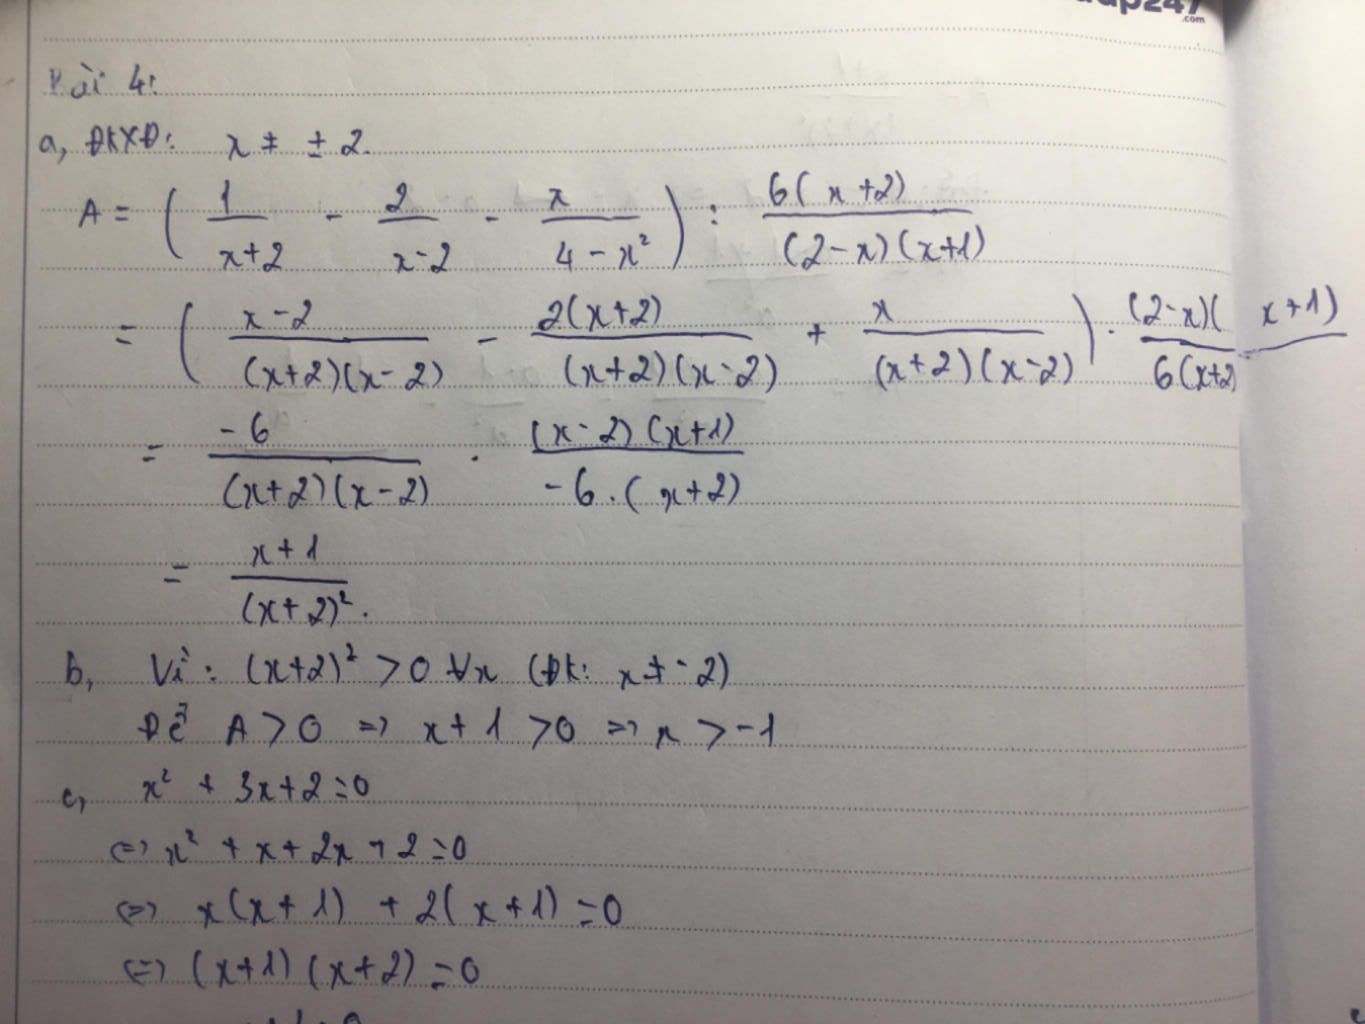 Bài 4:
a, ĐKXĐ: x ≠ ± 2.
A = ( 1/(x+2) - 2/(x-2) - x/(4-x²) ) : 6(x+2)/((2-x)(x+1))
= ( (x-2)/((x+2)(x-2)) - 2(x+2)/((x+2)(x-2)) + x/((x+2)(x-2)) ) . (2-x)(x+1)/(6(x+2)
= -6/((x+2)(x-2)) . (x-2)(x+1)/(-6.(x+2))
= (x+1)/(x+2)².
b, Vì: (x+2)² > 0 ∀x (ĐK: x ≠ -2)
Để A > 0 => x + 1 > 0 => x > -1
c, x² + 3x + 2 = 0
<=> x² + x + 2x + 2 = 0
<=> x(x+1) + 2(x+1) = 0
<=> (x+1)(x+2) = 0